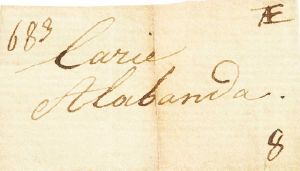 683
Æ
Carie
Alabanda.
8